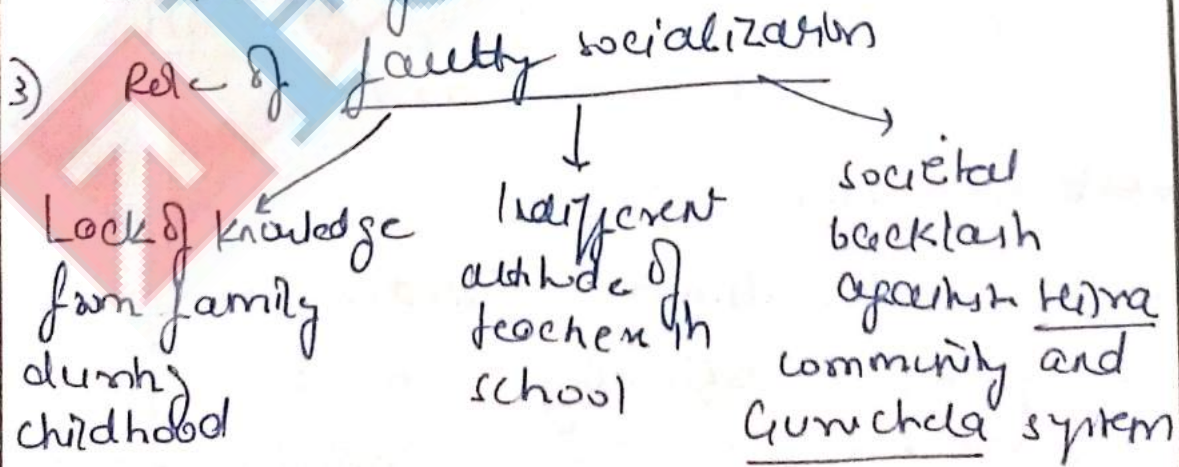 3) Role of faulty socialization
Lack of knowledge
from family
during
childhood
Indifferent
attitude of
teacher in
school
societal
backlash
against Hijra
community and
Guru chela system